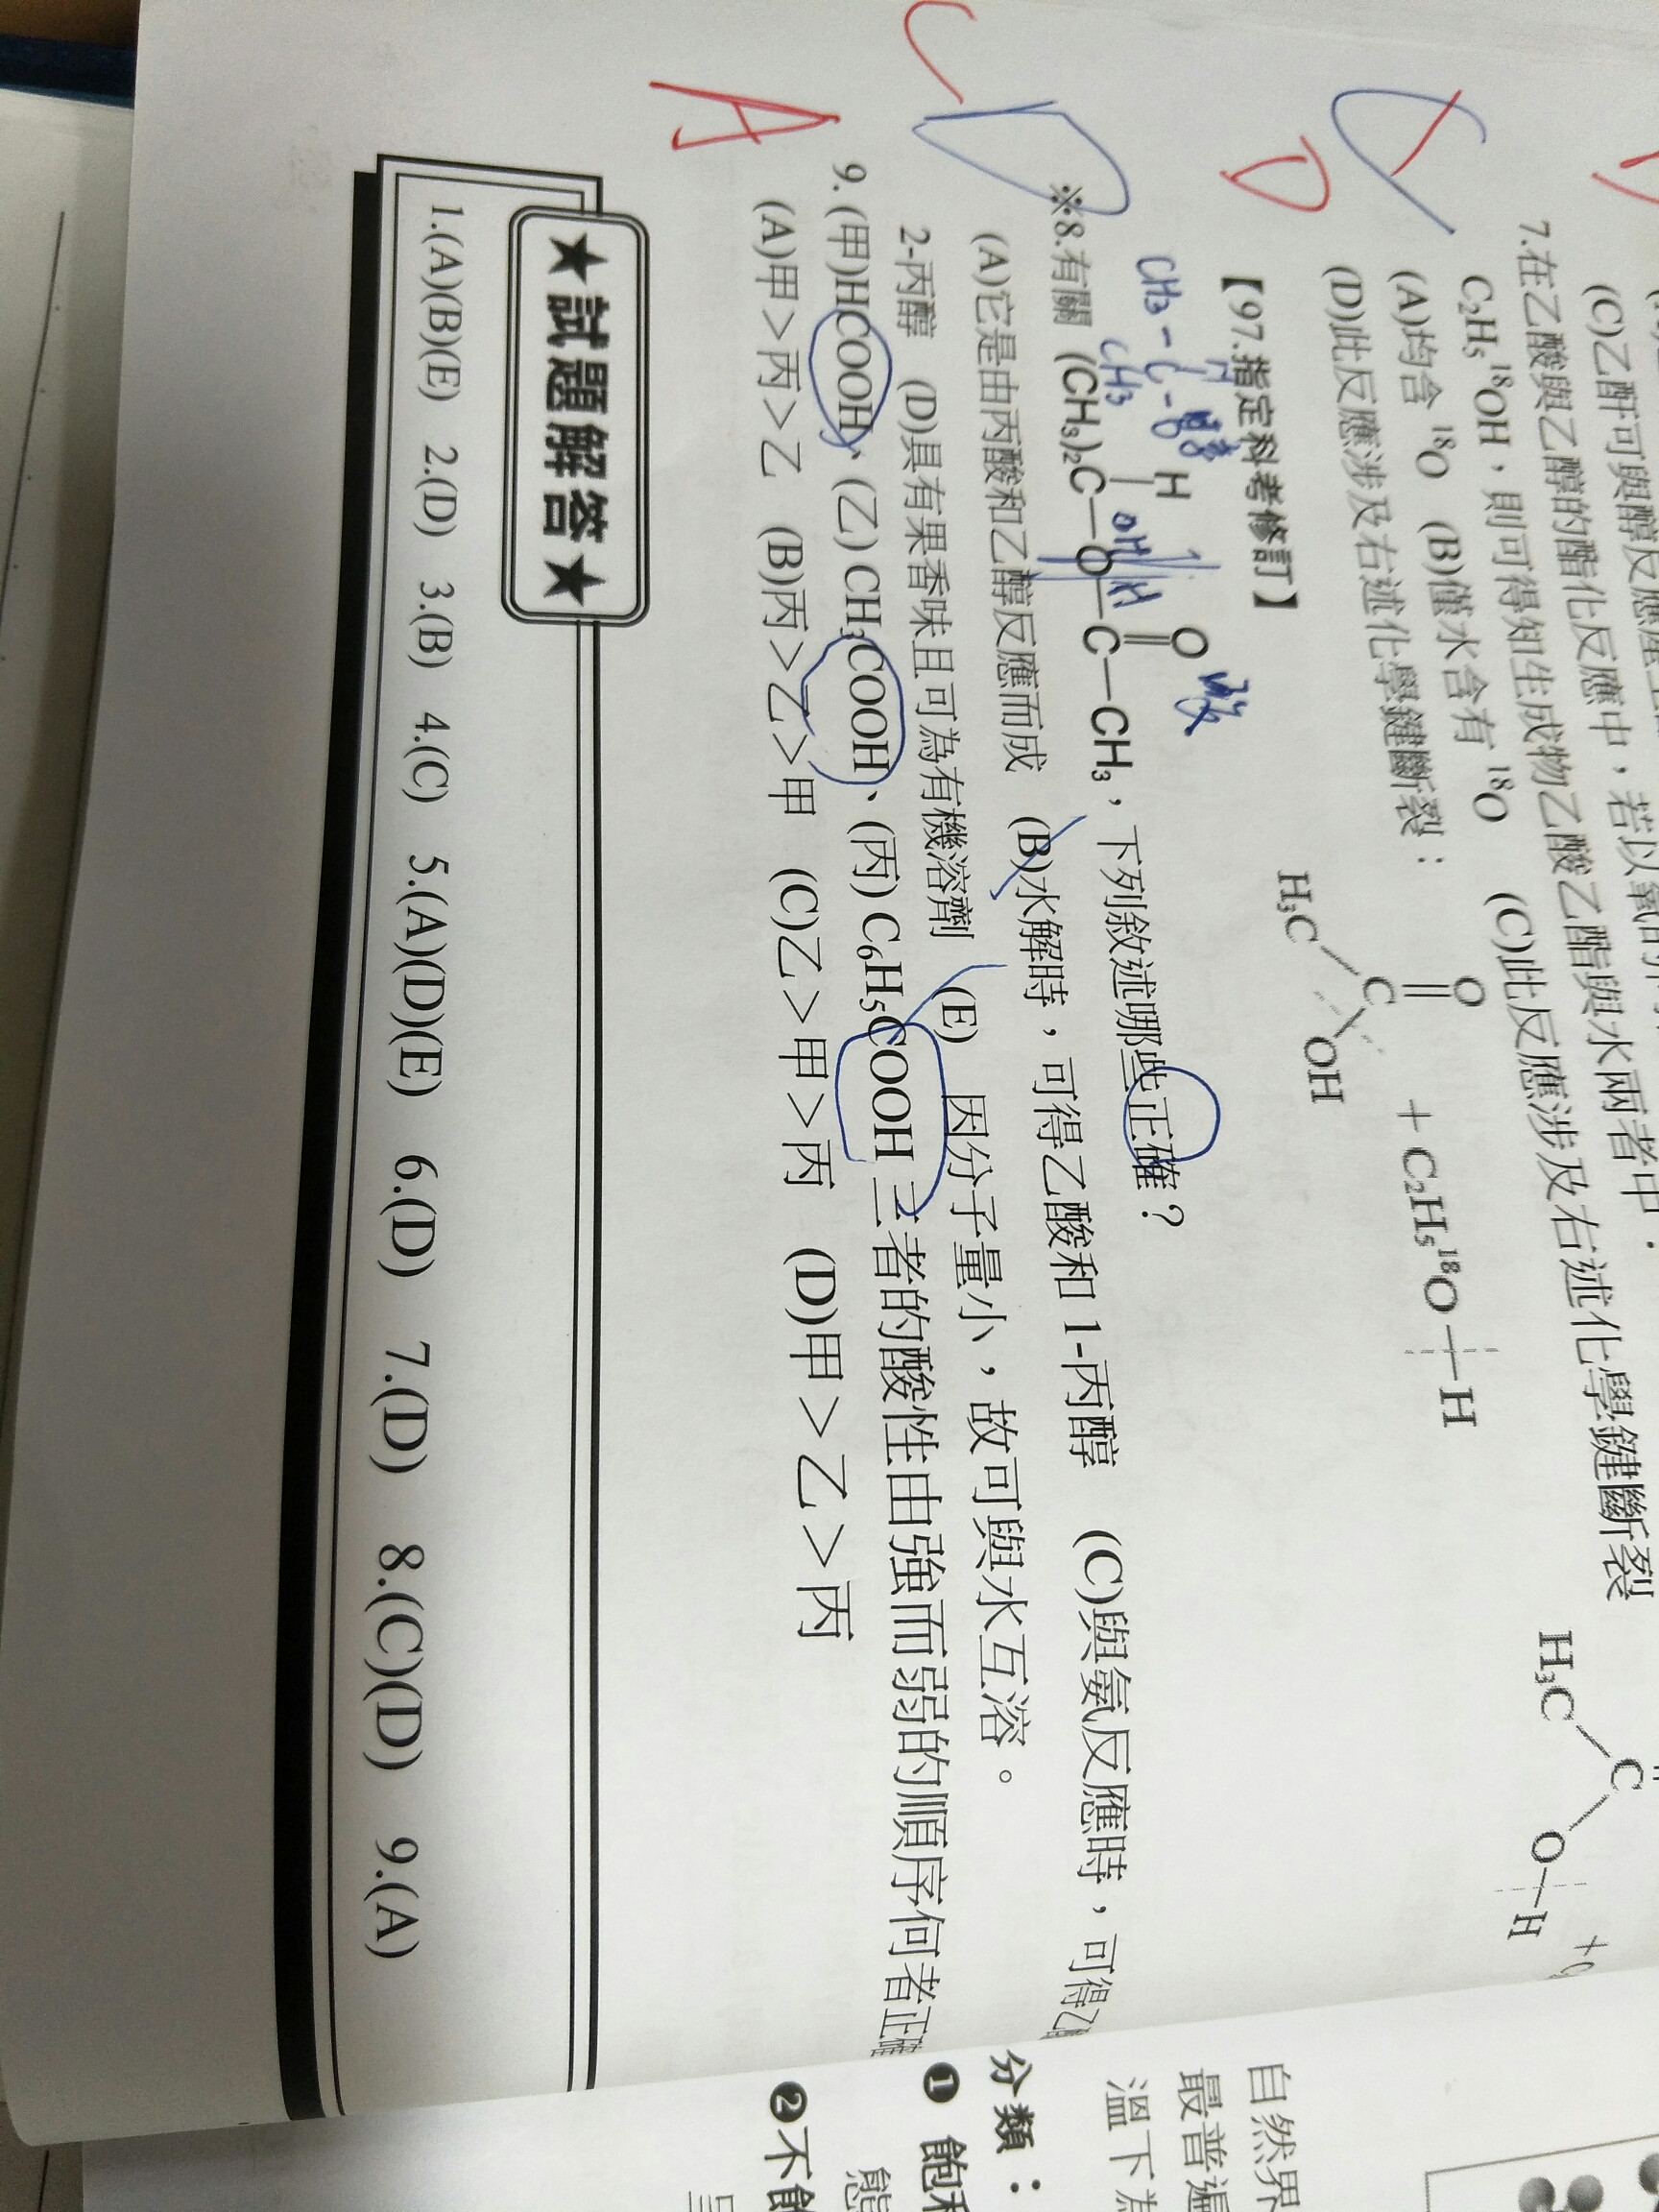 (C)乙酐可與醇反應產生
7.在乙酸與乙醇的酯化反應中，若以氧的
C₂H₅¹⁸OH，則可得知生成物乙酸乙酯與水兩者中：
(A)均含 ¹⁸O (B)僅水含有 ¹⁸O (C)此反應涉及右述化學鍵斷裂
(D)此反應涉及右述化學鍵斷裂：
O
H₃C C OH + C₂H₅¹⁸O—H
H₃C C O—H +
【97.指定科考修訂】
D
CH₃-C-O
H
CH₃
醇
OH H
酸
H O
※8.有關 (CH₃)₂C—O—C—CH₃，下列敘述哪些正確？
(A)它是由丙酸和乙醇反應而成 (B)水解時，可得乙酸和 1-丙醇 (C)與氨反應時，可得
2-丙醇 (D)具有果香味且可為有機溶劑 (E) 因分子量小，故可與水互溶。
A
9. (甲)HCOOH、(乙) CH₃COOH、(丙) C₆H₅COOH 三者的酸性由強而弱的順序何者正確
(A)甲＞丙＞乙 (B)丙＞乙＞甲 (C)乙＞甲＞丙 (D)甲＞乙＞丙
★試題解答★
1.(A)(B)(E) 2.(D) 3.(B) 4.(C) 5.(A)(D)(E) 6.(D) 7.(D) 8.(C)(D) 9.(A)
自然界
最普遍
溫下為
分類：
❶ 飽和
態
❷不飽